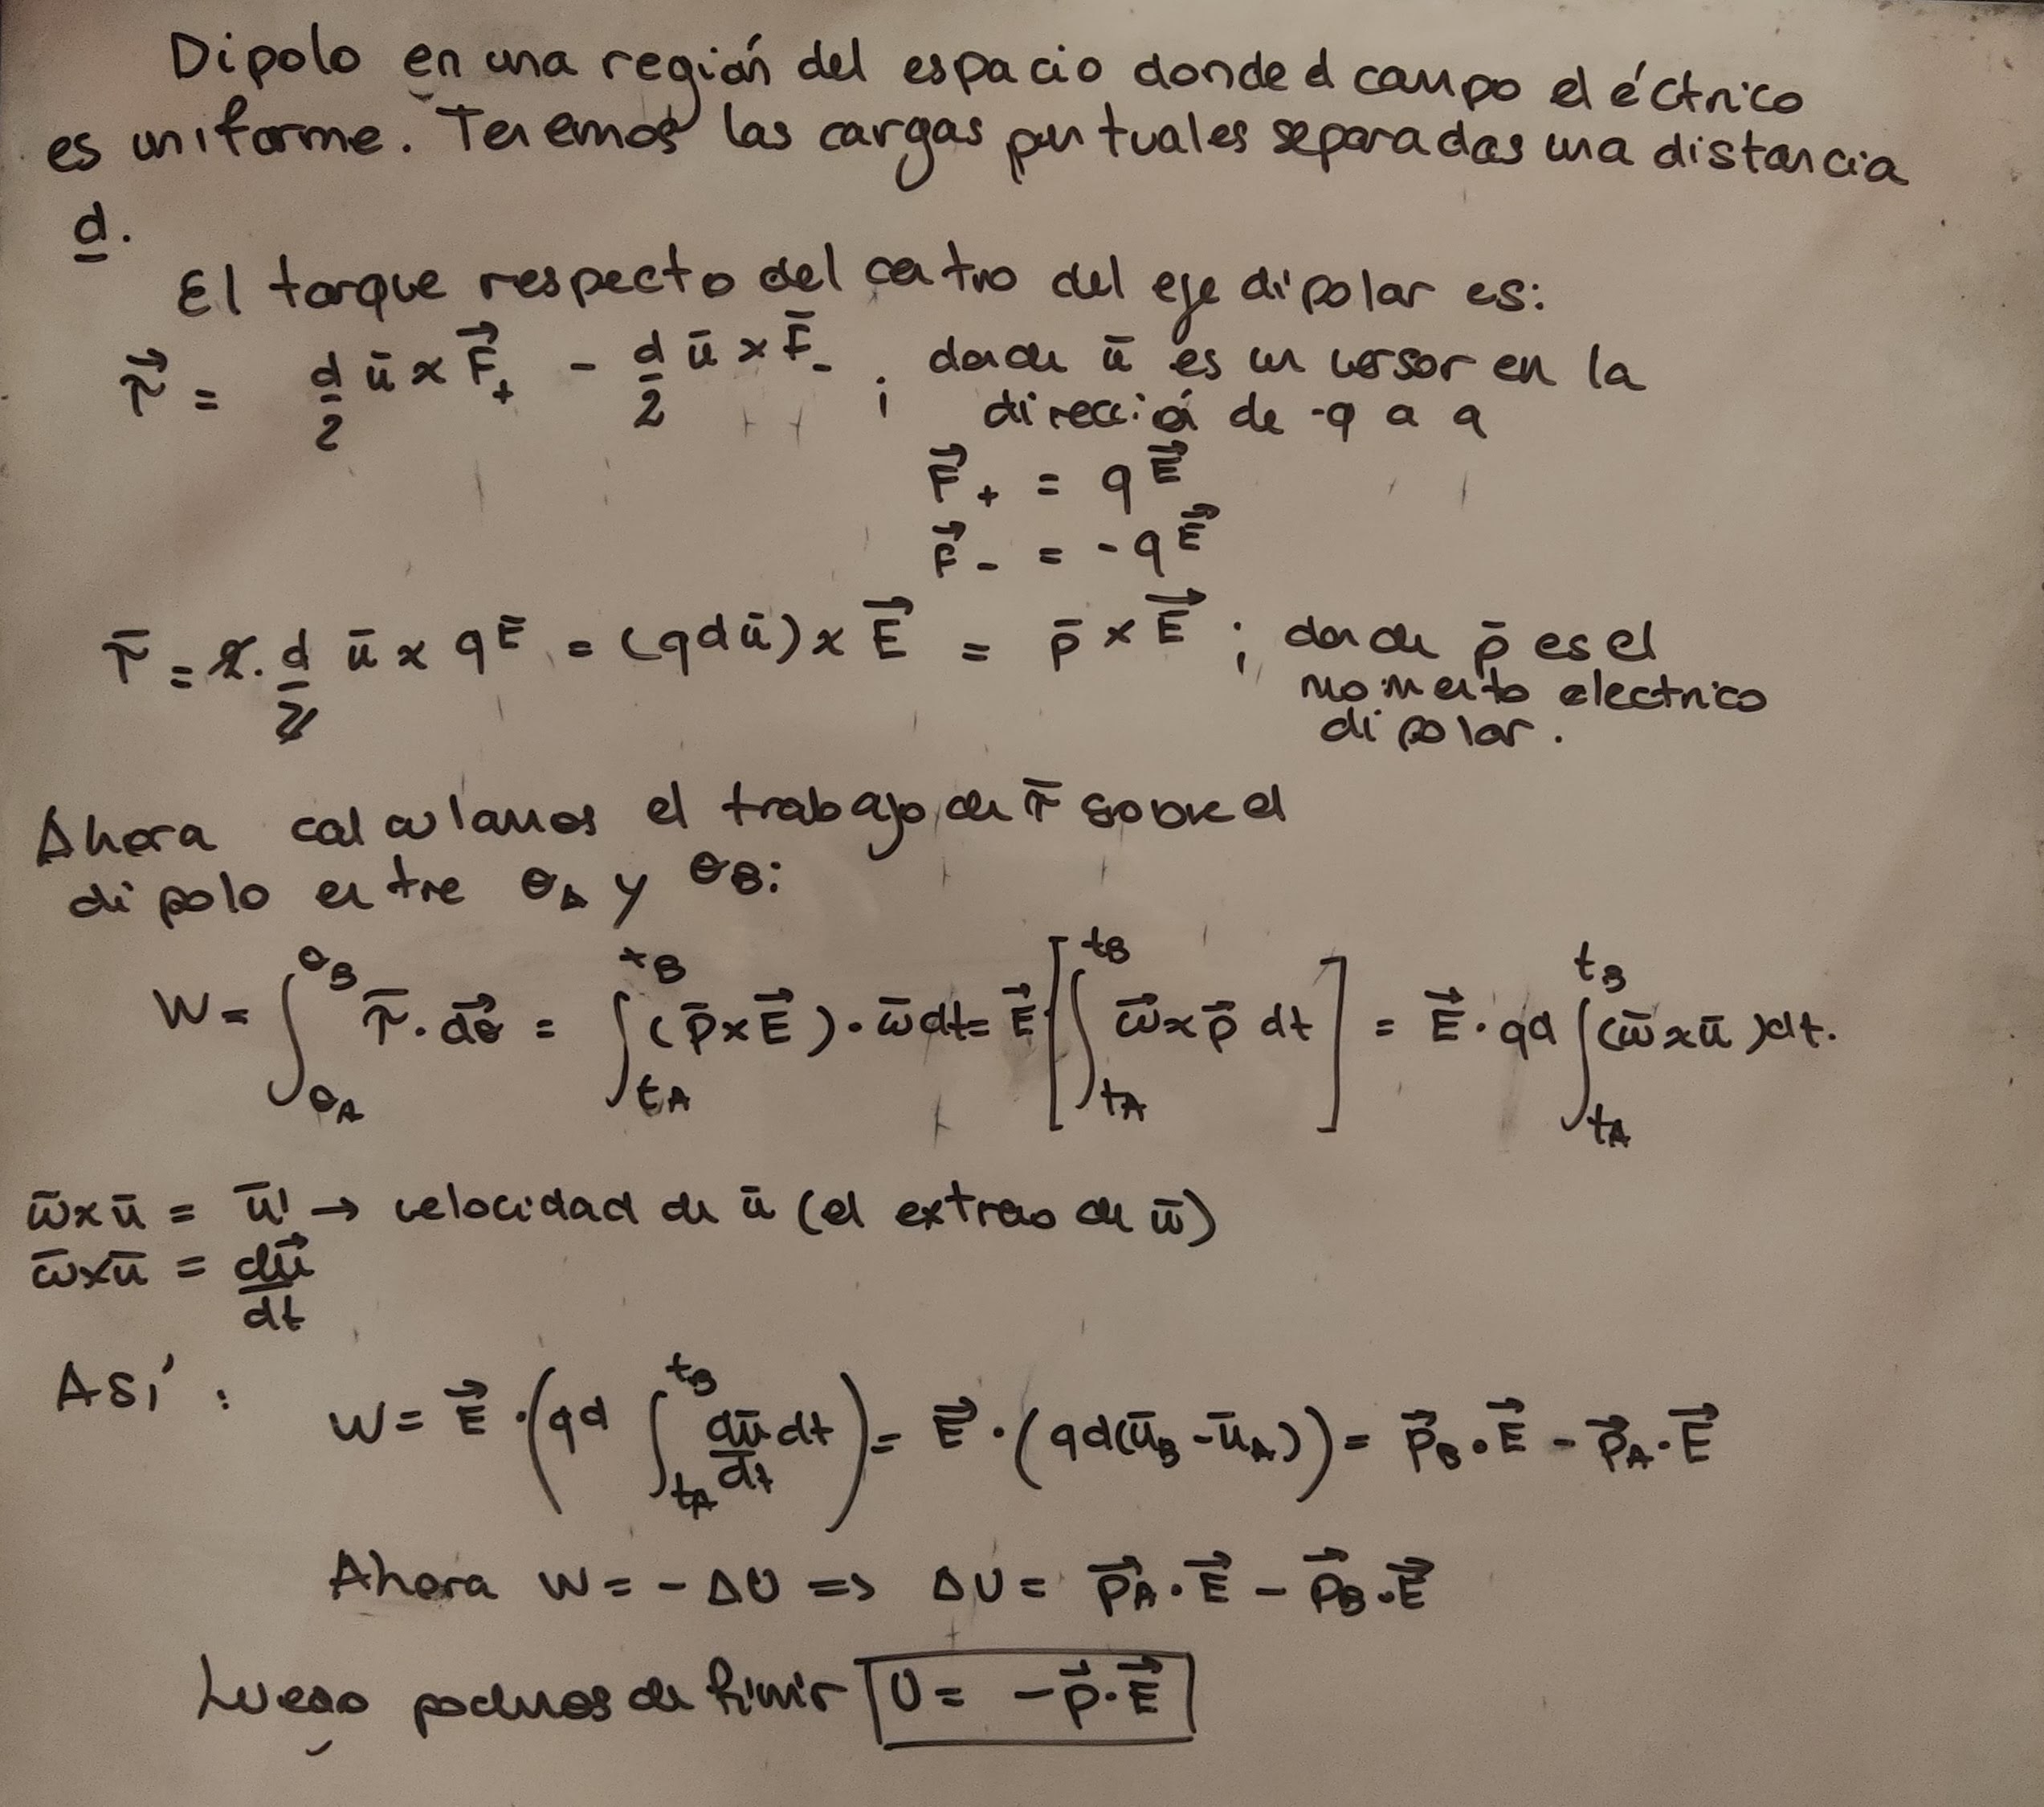 Dipolo en una región del espacio donde el campo eléctrico
es uniforme. Tenemos las cargas puntuales separadas una distancia
d.
El torque respecto del centro del eje dipolar es:
τ⃗ = d/2 ū × F⃗₊ - d/2 ū × F̄₋ ; donde ū es un versor en la
dirección de -q a q
F⃗₊ = qE⃗
F⃗₋ = -qE⃗
τ̄ = 2. d/2 ū × qĒ = (qdū) × E⃗ = p̄ × E⃗ ; donde p̄ es el
momento electrico
dipolar.
Ahora calculamos el trabajo de τ̄ sobre el
dipolo entre θA y θB:
W = ∫_θA^θB τ̄ · dθ⃗ = ∫_tA^tB (p̄ × E⃗) · ω̄ dt = E⃗ · [∫_tA^tB ω⃗ × p⃗ dt] = E⃗ · qd ∫_tA^tB (ω̄ × ū) dt.
ω̄ × ū = ū' → velocidad de ū (el extremo de ū)
ω̄ × ū = du⃗/dt
Así : W = E⃗ · (qd ∫_tA^tB dū/dt dt) = E⃗ · (qd(ūB - ūA)) = p⃗B · E⃗ - p⃗A · E⃗
Ahora W = - ΔU => ΔU = p⃗A · E⃗ - p⃗B · E⃗
Luego podemos definir U = - p⃗ · E⃗